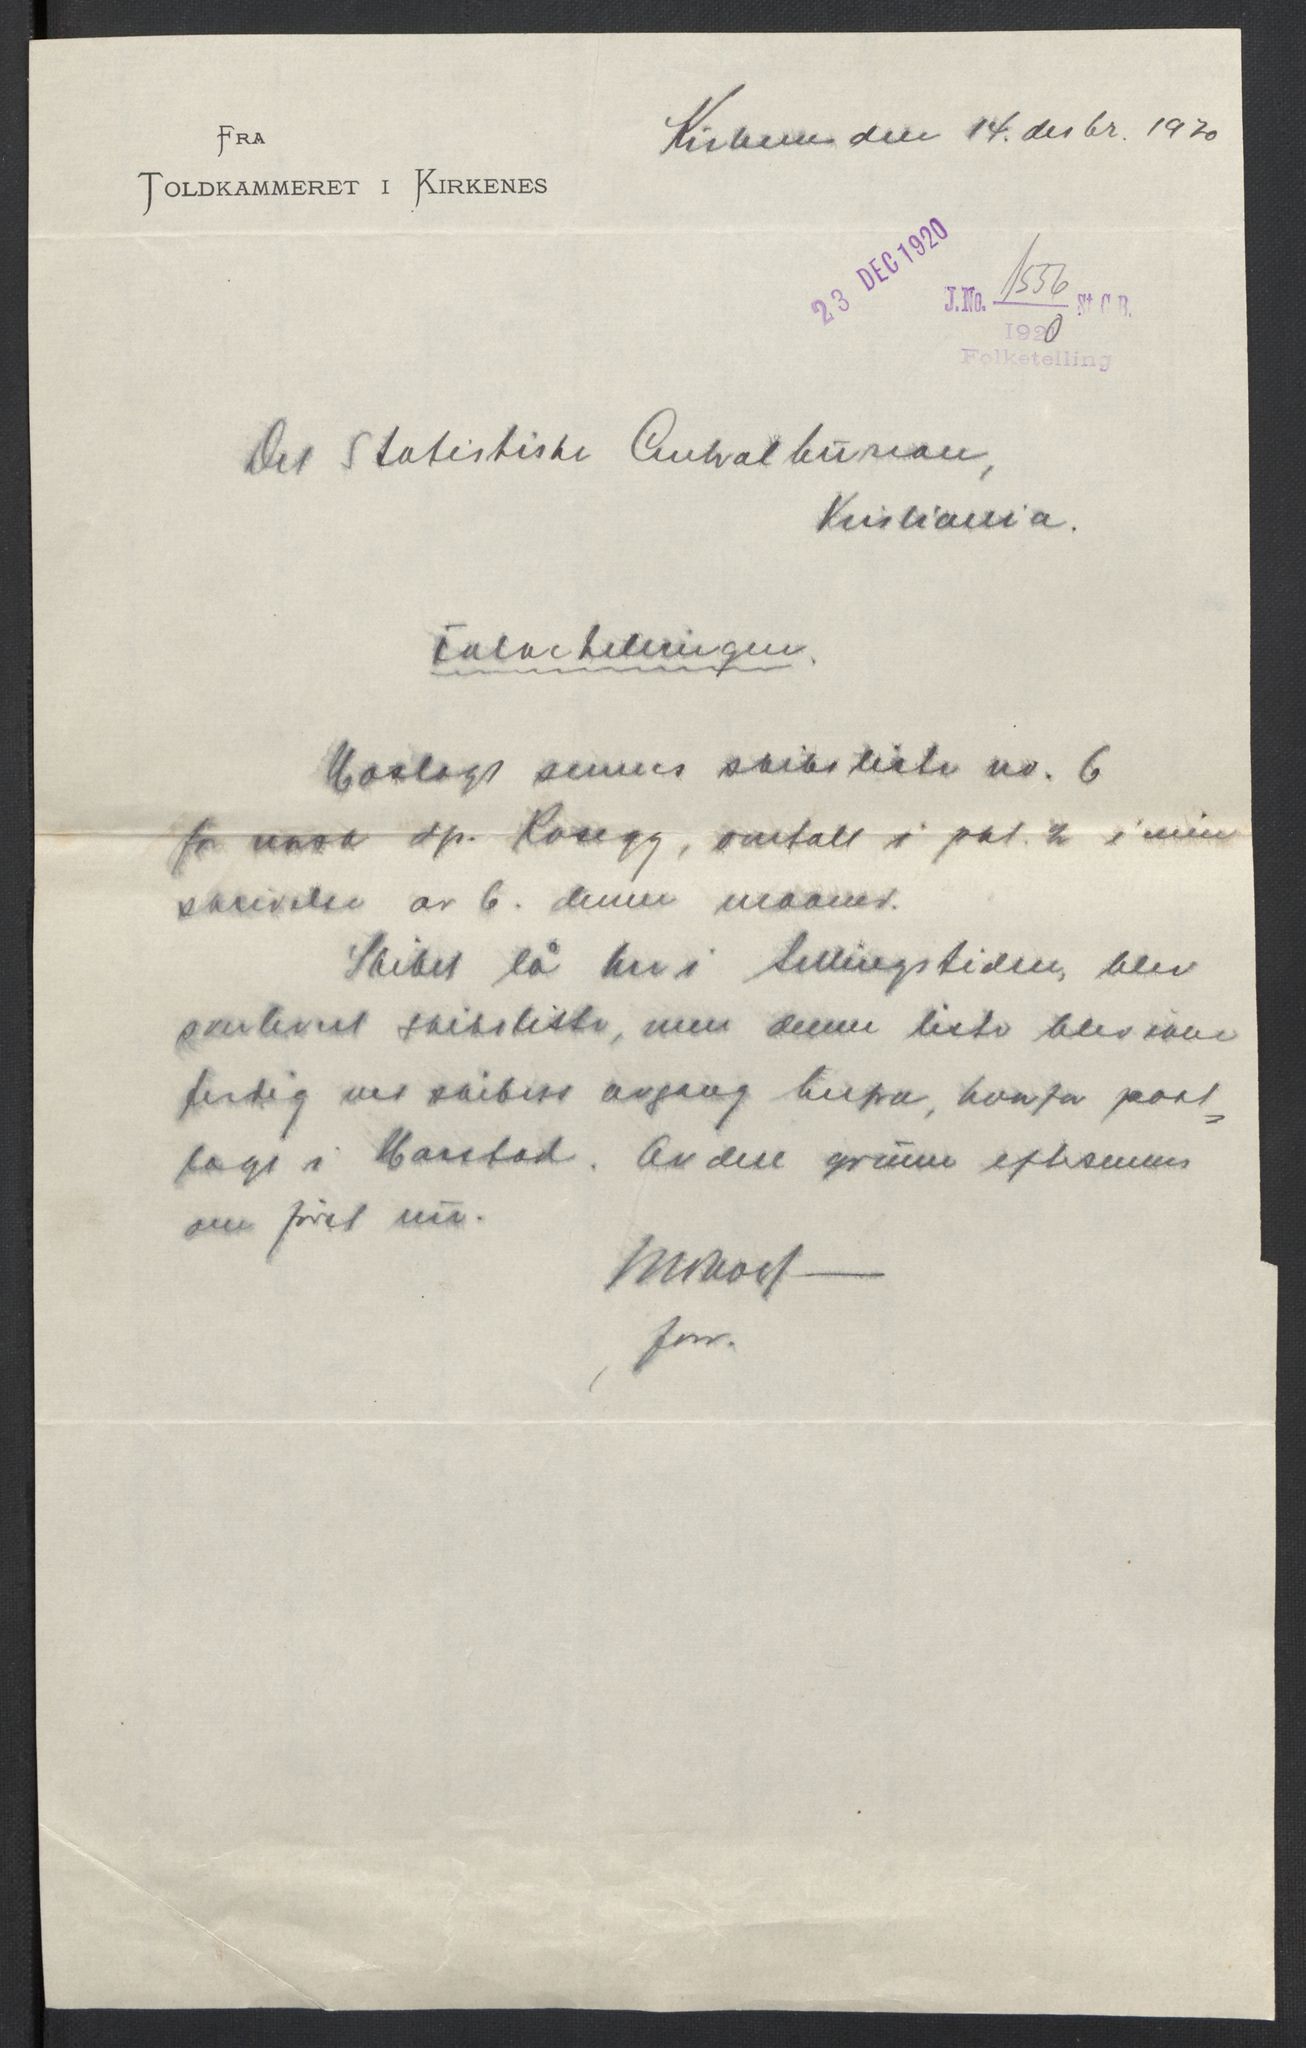 FRA
TOLDKAMMERET I KIRKENES
Kirkenes den 14. desbr. 1920
23 DEC 1920
J.No. 1556 St. C. B.
1920
Folketelling
Det Statistiske Centralbureau,
Kristiania.
Folketellingen.
Vedlagt sendes skibsliste no. 6
for norsk dp. Rosegg, omtalt i pkt. 2 i min
skrivelse av 6. denne maaned.
Skibet lå her i tellingstiden, blev
omlevert skibsliste, men denne liste blev ikke
ferdig ved skibets avgang herfra, hvorfor post-
lagt i Harstad. Av den grunn eftersendes
den først nu.
forv.